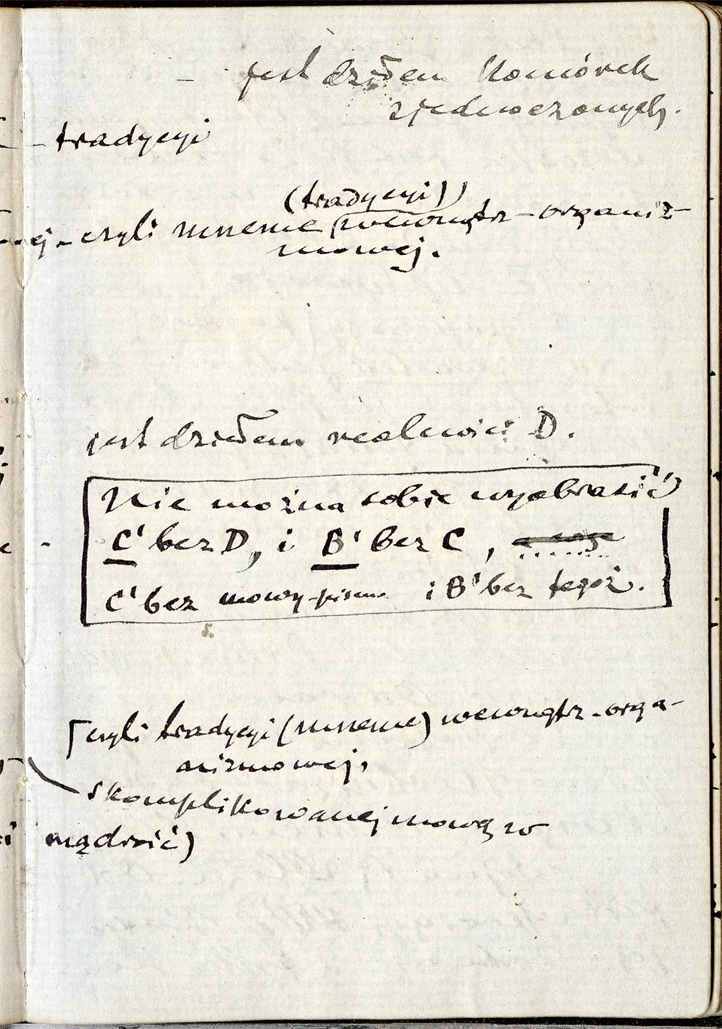 – jest dziełem komórek
zjednoczonych.
– tradycyi
(tradycyi))
ej – czyli mneme (wewnątrz-organiz-
mowej.
jest dziełem realności D.
Nie można sobie wyobrazić
C' bez D, i B' bez C,
C' bez mowy-pisma i B' bez tegoż.
[czyli tradycyi (mneme) wewnątrz-orga-
nizmowej,
skomplikowanej mową w
mądrość)